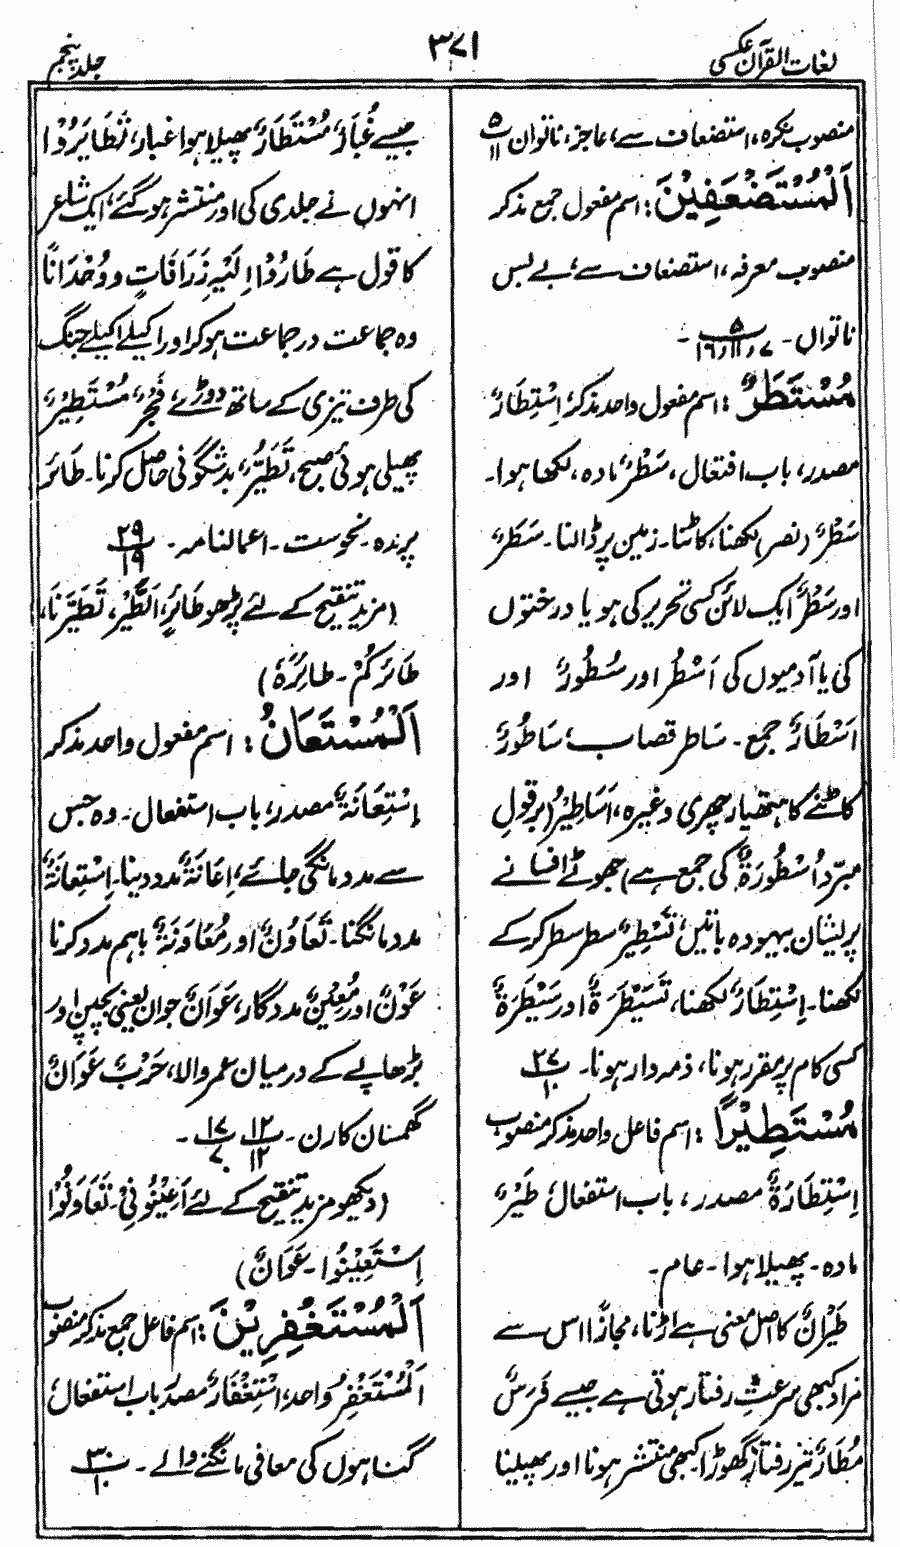 لغات القرآن عکسی
۳۷۱
جلد پنجم
منصوب نکرہ، استضعاف سے، عاجز، ناتواں ۵/۱۱
اَلْمُسْتَضْعَفِیْنَ: اسم مفعول جمع مذکر
منصوب معرفہ، استضعاف سے، بے بس
ناتواں۔ ۵/۷،۱۱،۱۶۔
مُسْتَطَرٌ: اسم مفعول واحد مذکر، اِسْتِطَارٌ
مصدر، باب افتعال، سَطْرٌ مادہ، لکھا ہوا۔
سَطْرٌ (نصر) لکھنا، کاٹنا۔ زمین پر ڈالنا۔ سَطَرٌ
اور سَطْرٌ ایک لائن کسی تحریر کی ہو یا درختوں
کی یا آدمیوں کی اَسْطُر اور سُطُورٌ اور
اَسْطَارٌ جمع۔ سَاطر قصاب، سَاطُورٌ
کاٹنے کا ہتھیار چھری وغیرہ، اَسَاطِیْرُ (بر قولِ
مبرّد اُسْطُورَةٌ کی جمع ہے) جھوٹے افسانے
پریشان بیہودہ باتیں، تَسْطِیْرٌ سطر سطر کر کے
لکھنا۔ اِسْتِطَارٌ لکھنا، تَسَیْطَرَةٌ اور سَیْطَرَةٌ
کسی کام پر مقرر ہونا، ذمہ دار ہونا۔ ۲۷/۱۰
مُسْتَطِیْرًا: اسم فاعل واحد مذکر منصوب
اِسْتِطَارَةٌ مصدر، باب استفعال، طَیْرٌ
مادہ۔ پھیلا ہوا۔ عام۔
طَیْرَانٌ کا اصل معنی ہے اڑنا، مجازاً اس سے
مراد کبھی سرعتِ رفتار ہوتی ہے جیسے فَرَسٌ
مُطَارٌ تیز رفتار گھوڑا کبھی منتشر ہونا اور پھیلنا
جیسے غُبَارٌ مُسْتَطَارٌ پھیلا ہوا غبار، تَطَایَرُوْا
انہوں نے جلدی کی اور منتشر ہو گئے، ایک شاعر
کا قول ہے طَارُوْا اِلَیْهِ زَرَافَاتٍ وَ وُحْدَانًا
وہ جماعت در جماعت ہو کر اور اکیلے اکیلے جنگ
کی طرف تیزی کے ساتھ دوڑے، فَجْرٌ مُسْتَطِیْرٌ
پھیلی ہوئی صبح، تَطَیُّرٌ بدشگونی حاصل کرنا۔ طَائر
پرندہ۔ نحوست۔ اعمالنامہ۔ ۲۹/۱۹
(مزید تنقیح کے لئے پڑھو طَائِرٍ، اَلطَّیْرُ، تَطَیَّرْنَا،
طَائرکُمْ۔ طائِرُہٗ)
اَلْمُسْتَعَانُ: اسم مفعول واحد مذکر
اِسْتِعَانَةٌ مصدر، باب استفعال۔ وہ جس
سے مدد مانگی جائے، اِعَانَةٌ مدد دینا۔ اِسْتِعَانَةٌ
مدد مانگنا۔ تَعَاوُنٌ اور مُعَاوَنَةٌ باہم مدد کرنا
عَوْنٌ اور مُعِیْنٌ مددگار، عَوَانٌ جوان یعنی بچپن اور
بڑھاپے کے درمیان عمر والا، حَرْبٌ عَوَانٌ
گھمسان کا رن۔ ۱۲/۱۲ ۱۷/۷۔
(دیکھو مزید تنقیح کے لئے اَعِیْنُوْنِیْ۔ تَعَاوَنُوْا
اِسْتَعِیْنُوا۔ عَوَانٌ)
اَلْمُسْتَغْفِرِیْنَ: اسم فاعل جمع مذکر منصوب
اَلْمُسْتَغْفِرُ واحد، اِسْتِغْفَارٌ مصدر باب استفعال،
گناہوں کی معافی مانگنے والے۔ ۳۰/۱۰